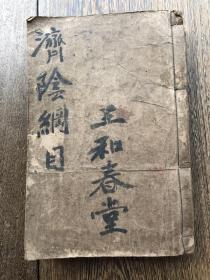 濟陰綱目
王和春堂